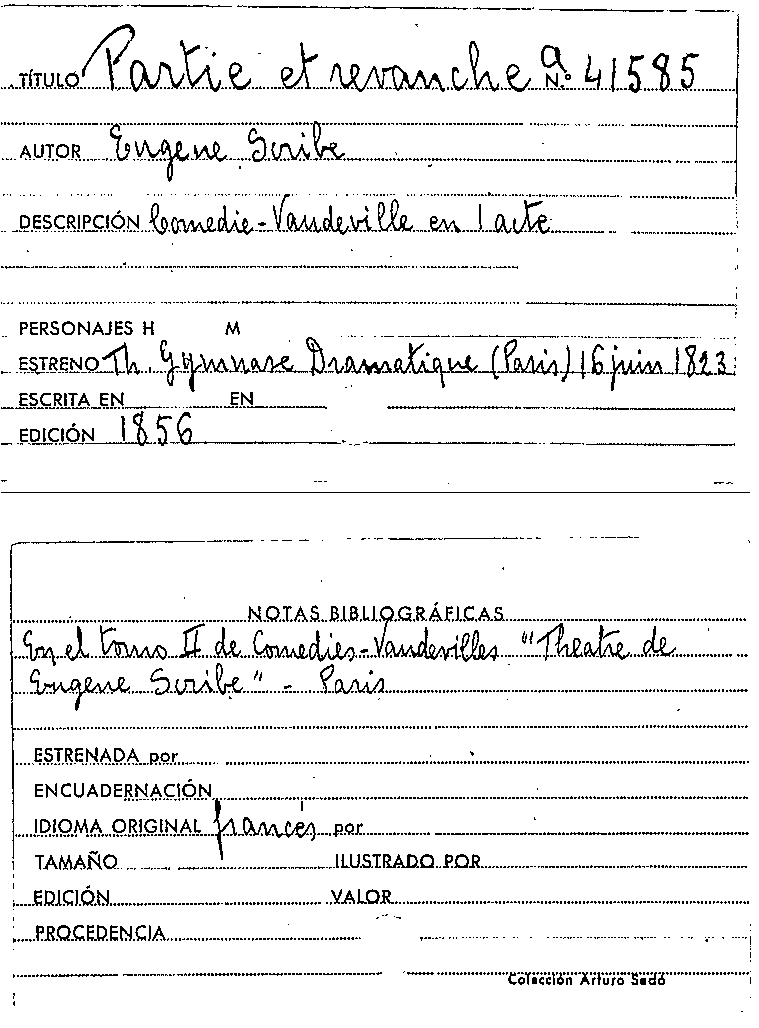 TÍTULO Partie et revanche a N.º 41585
AUTOR Eugene Scribe
DESCRIPCIÓN Comedie-Vaudeville en 1 acte
PERSONAJES H M
ESTRENO Th. Gymnase Dramatique (Paris) 16 juin 1823
ESCRITA EN EN
EDICIÓN 1856
NOTAS BIBLIOGRÁFICAS
En el tomo II de Comedies-Vaudevilles "Theatre de
Eugene Scribe" - Paris
ESTRENADA por
ENCUADERNACIÓN
IDIOMA ORIGINAL francés por
TAMAÑO ILUSTRADO POR
EDICIÓN VALOR
PROCEDENCIA
Colección Arturo Sedó